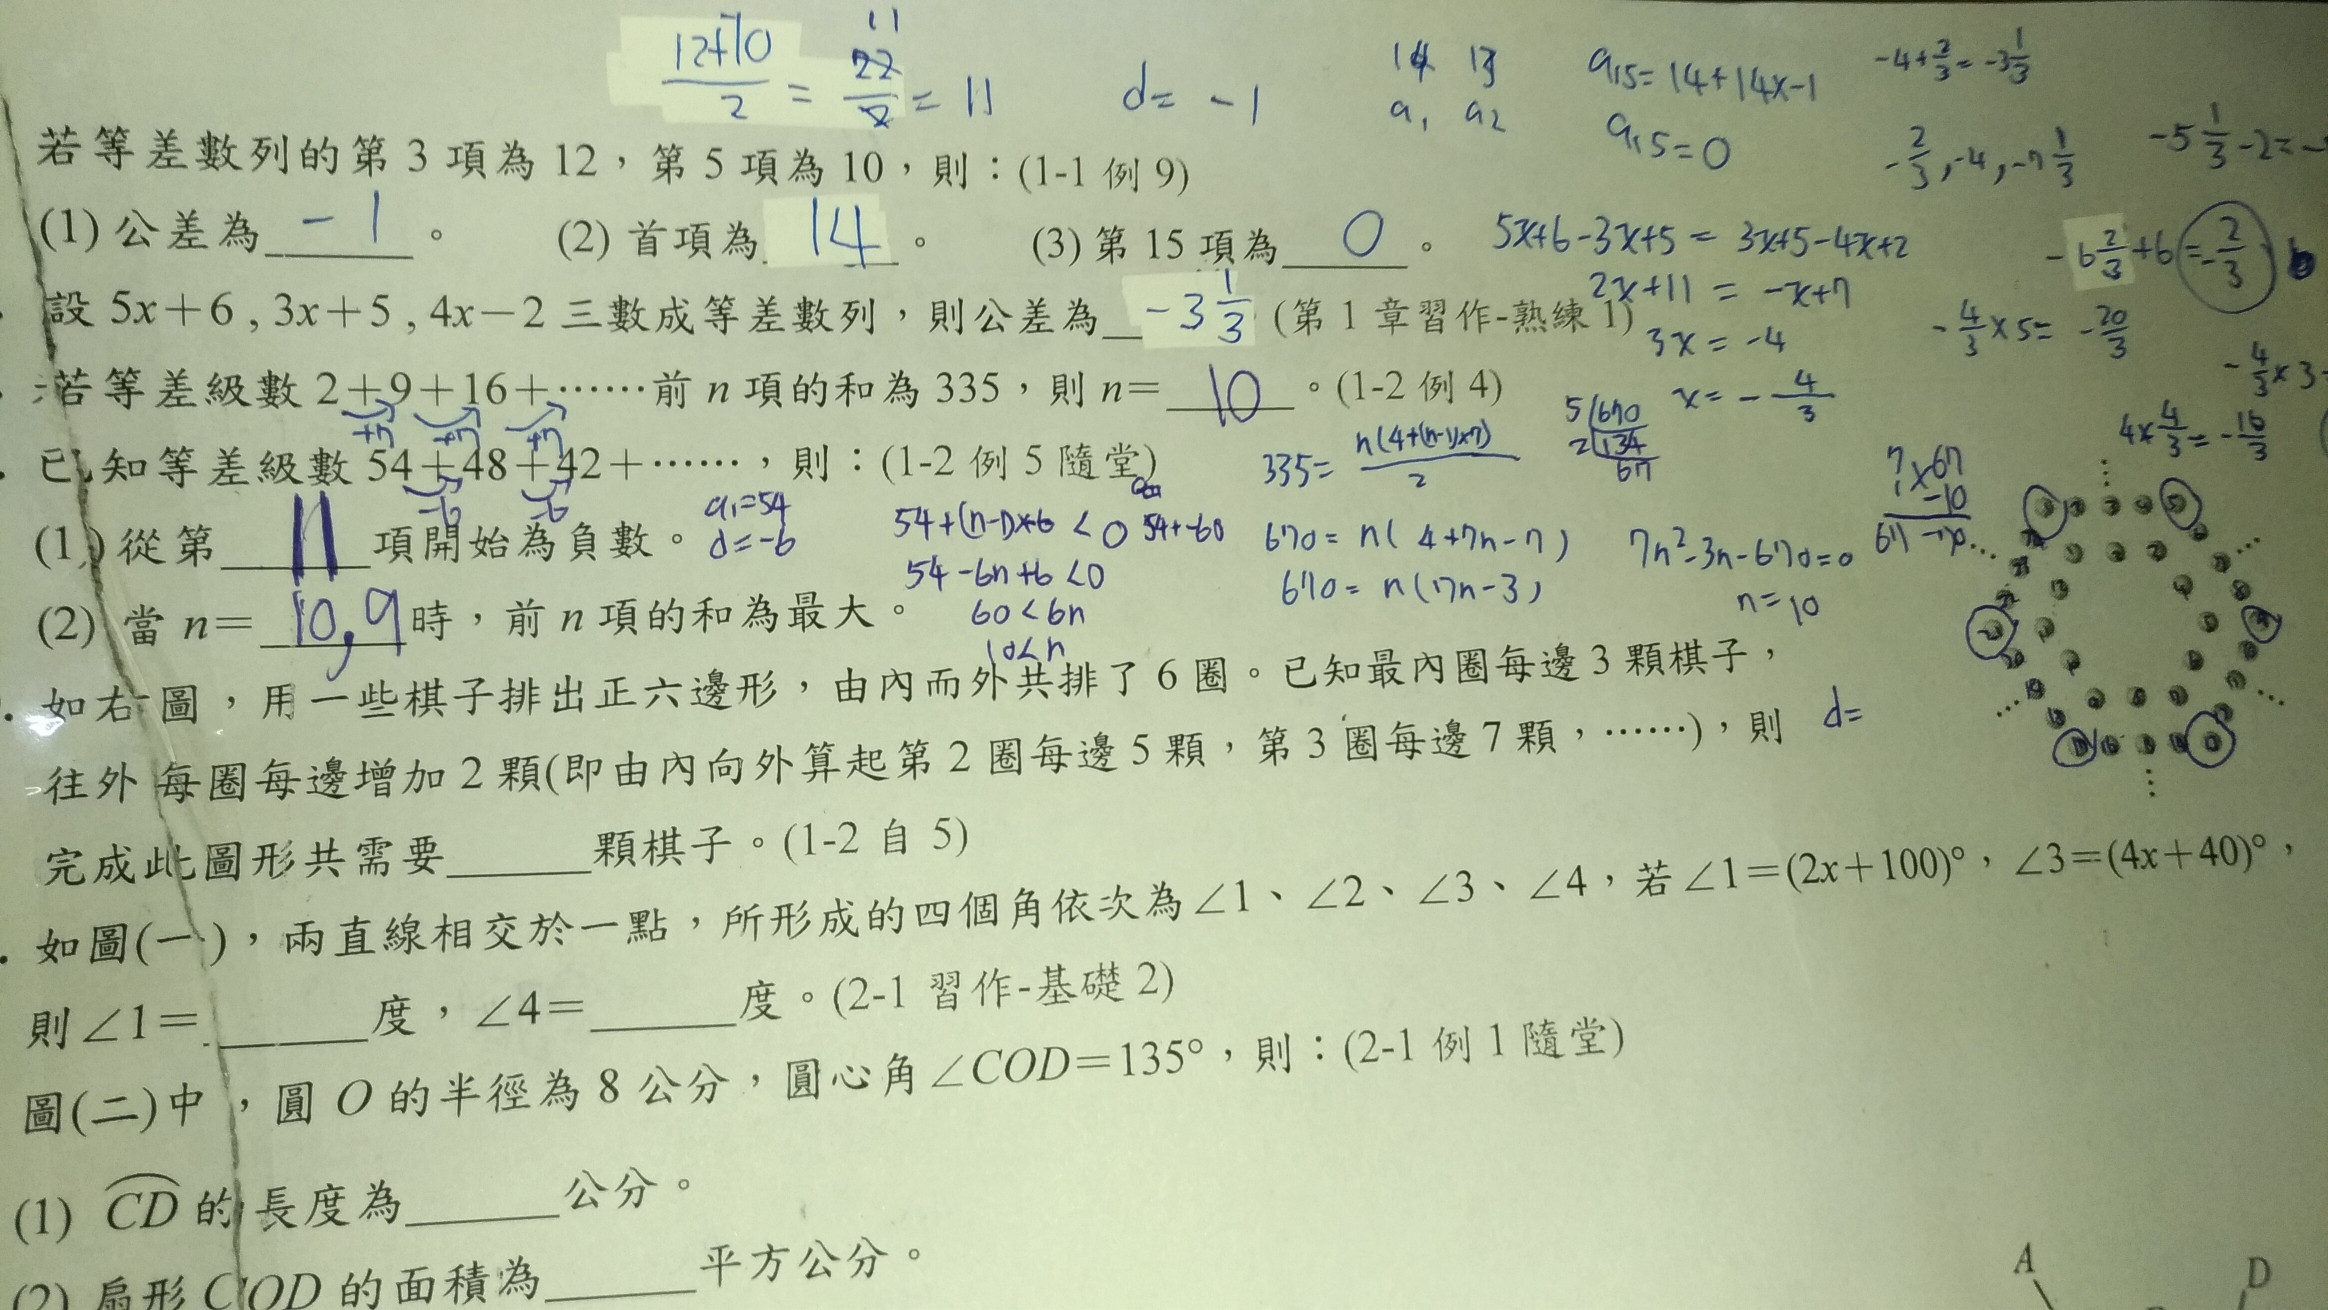 12+10/2 = 22/2 = 11 11 d= -1 14 13 a₁ a₂ a₁₅=14+14x-1 a₁₅=0 -4+2/3=-3 1/3
-2/3, -4, -7 1/3 -5 1/3 -2=
若等差數列的第 3 項為 12,第 5 項為 10,則:(1-1 例 9)
(1) 公差為 -1 。 (2) 首項為 14 。 (3) 第 15 項為 0 。
5x+6-3x+5 = 3x+5-4x+2
2x+11 = -x+7
3x = -4
x = -4/3
-6 2/3 +6 = -2/3
-4/3 x5= -20/3
-4/3 x3
4x4/3= -16/3
設 5x+6 , 3x+5 , 4x-2 三數成等差數列,則公差為 -3 1/3 (第 1 章習作-熟練 1)
若等差級數 2+9+16+⋯⋯前 n 項的和為 335,則 n= 10 。(1-2 例 4)
+7 +7 +7
335= n(4+(n-1)x7)/2
5 670
2 134
67
670 = n( 4+7n-7 )
670 = n (7n-3)
7n²-3n-670=0
n=10
7 x67
1 -10
67 -70
已知等差級數 54+48+42+⋯⋯,則:(1-2 例 5 隨堂)
-6 -6
a₁=54
d=-6
54+(n-1)x-6 < 0 54+-60
54-6n+6 <0
60<6n
10<n
(1) 從第 11 項開始為負數。
(2) 當 n= 10,9 時,前 n 項的和為最大。
如右圖,用一些棋子排出正六邊形,由內而外共排了 6 圈。已知最內圈每邊 3 顆棋子,
往外每圈每邊增加 2 顆(即由內向外算起第 2 圈每邊 5 顆,第 3 圈每邊 7 顆,⋯⋯),則
d=
完成此圖形共需要______顆棋子。(1-2 自 5)
如圖(一),兩直線相交於一點,所形成的四個角依次為∠1、∠2、∠3、∠4,若∠1=(2x+100)°,∠3=(4x+40)°,
則∠1=______度,∠4=______度。(2-1 習作-基礎 2)
圖(二)中,圓 O 的半徑為 8 公分,圓心角∠COD=135°,則:(2-1 例 1 隨堂)
(1) CD 的長度為______公分。
(2) 扇形 COD 的面積為______平方公分。
A D